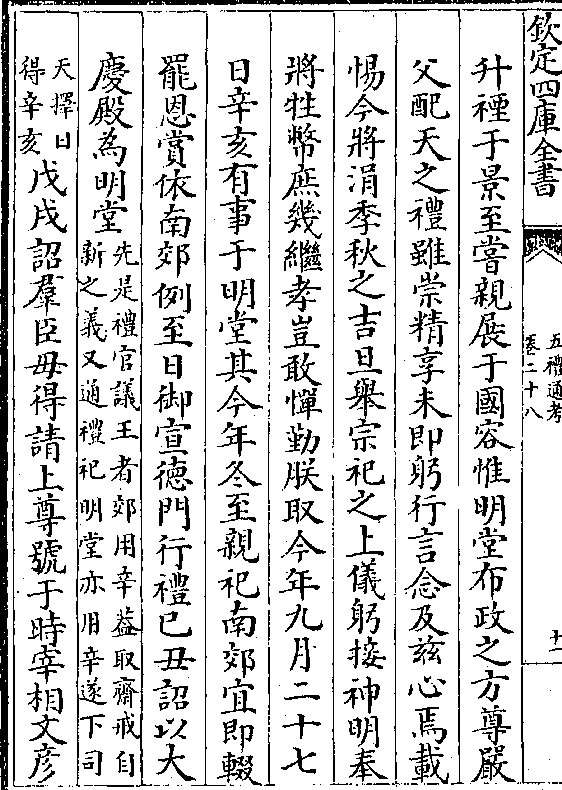 欽定四庫全書
五禮通考
卷二十八
十二
升禋于景至嘗親展于國容惟明堂布政之方尊嚴
父配天之禮雖崇精享未即躬行言念及兹心焉載
惕今將涓季秋之吉旦舉宗祀之上儀躬接神明奉
將牲幣庶幾繼孝豈敢憚勤朕取今年九月二十七
日辛亥有事于明堂其今年冬至親祀南郊宜即輟
罷恩賞依南郊例至日御宣德門行禮已丑詔以大
慶殿為明堂
先是禮官議王者郊用辛葢取齋戒自
新之義又通禮祀明堂亦用辛遂下司
天擇日
得辛亥
戊戌詔羣臣毋得請上尊號于時宰相文彦